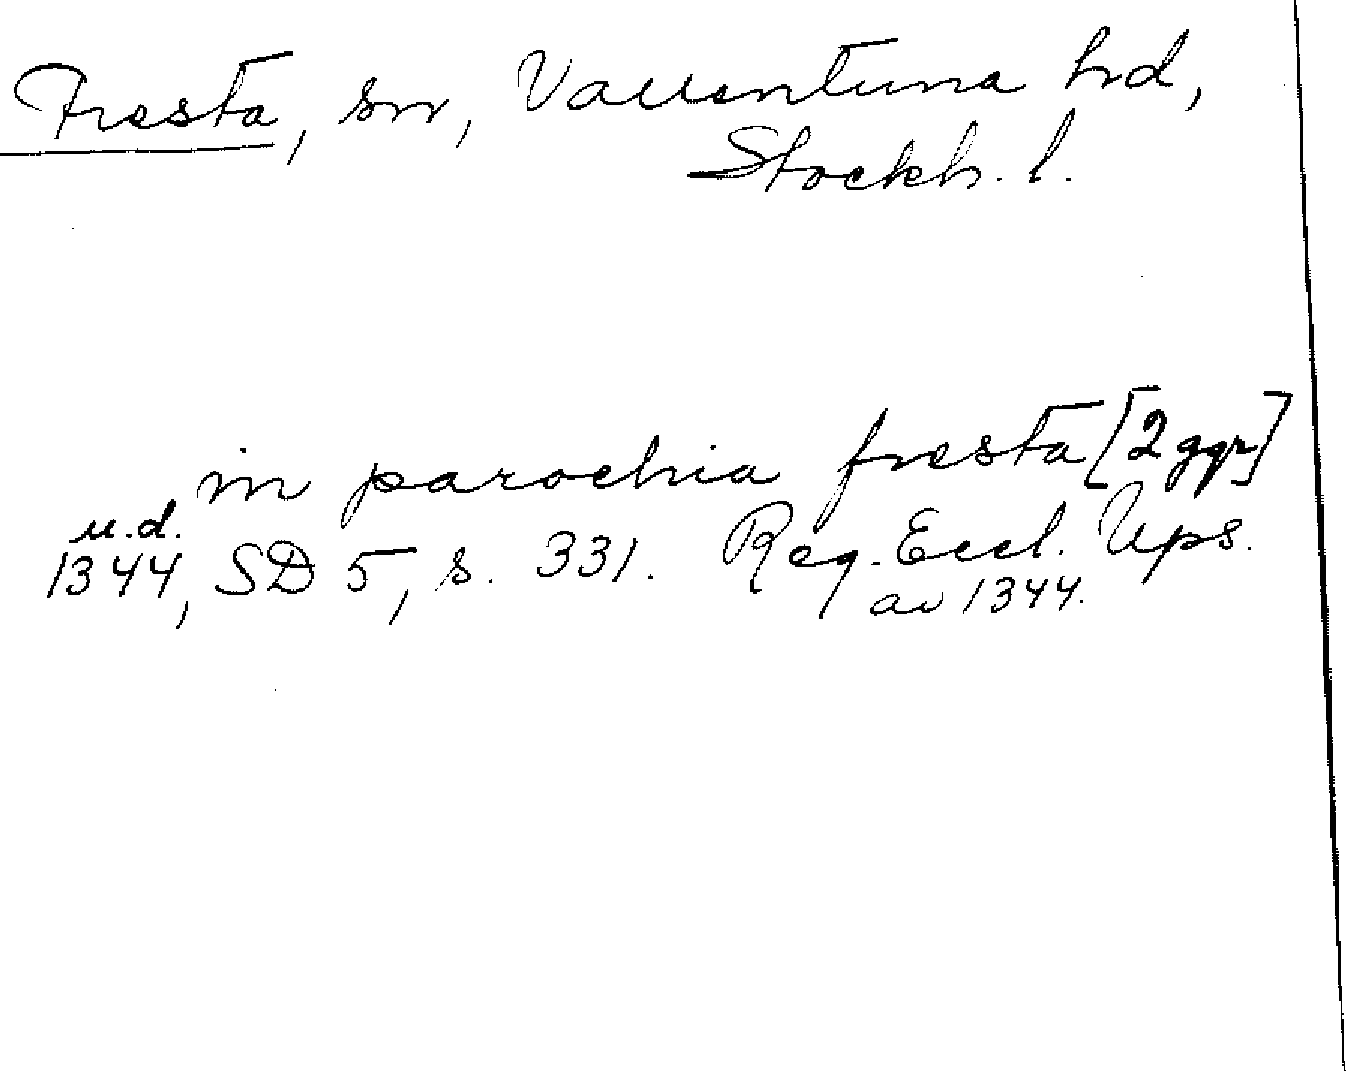 Fresta, sn, Vallentuna hd,
Stockh. l.
in parochia fresta [2 ggr]
u.d.
1344, SD 5, s. 331. Reg. Eccl. Ups.
av 1344.